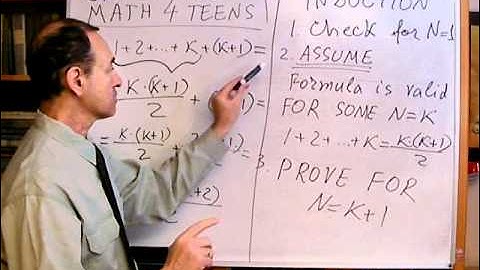 MATH 4 TEENS
1+2+...+K+(K+1)=
K·(K+1)/2 + (K+1)=
=K·(K+1)/2 + 2·(K+1)/2=
+2)
INDUCTION
1. Check for N=1
2. ASSUME
Formula is valid
FOR SOME N=K
1+2+...+K=K·(K+1)/2
3. PROVE FOR
N=K+1